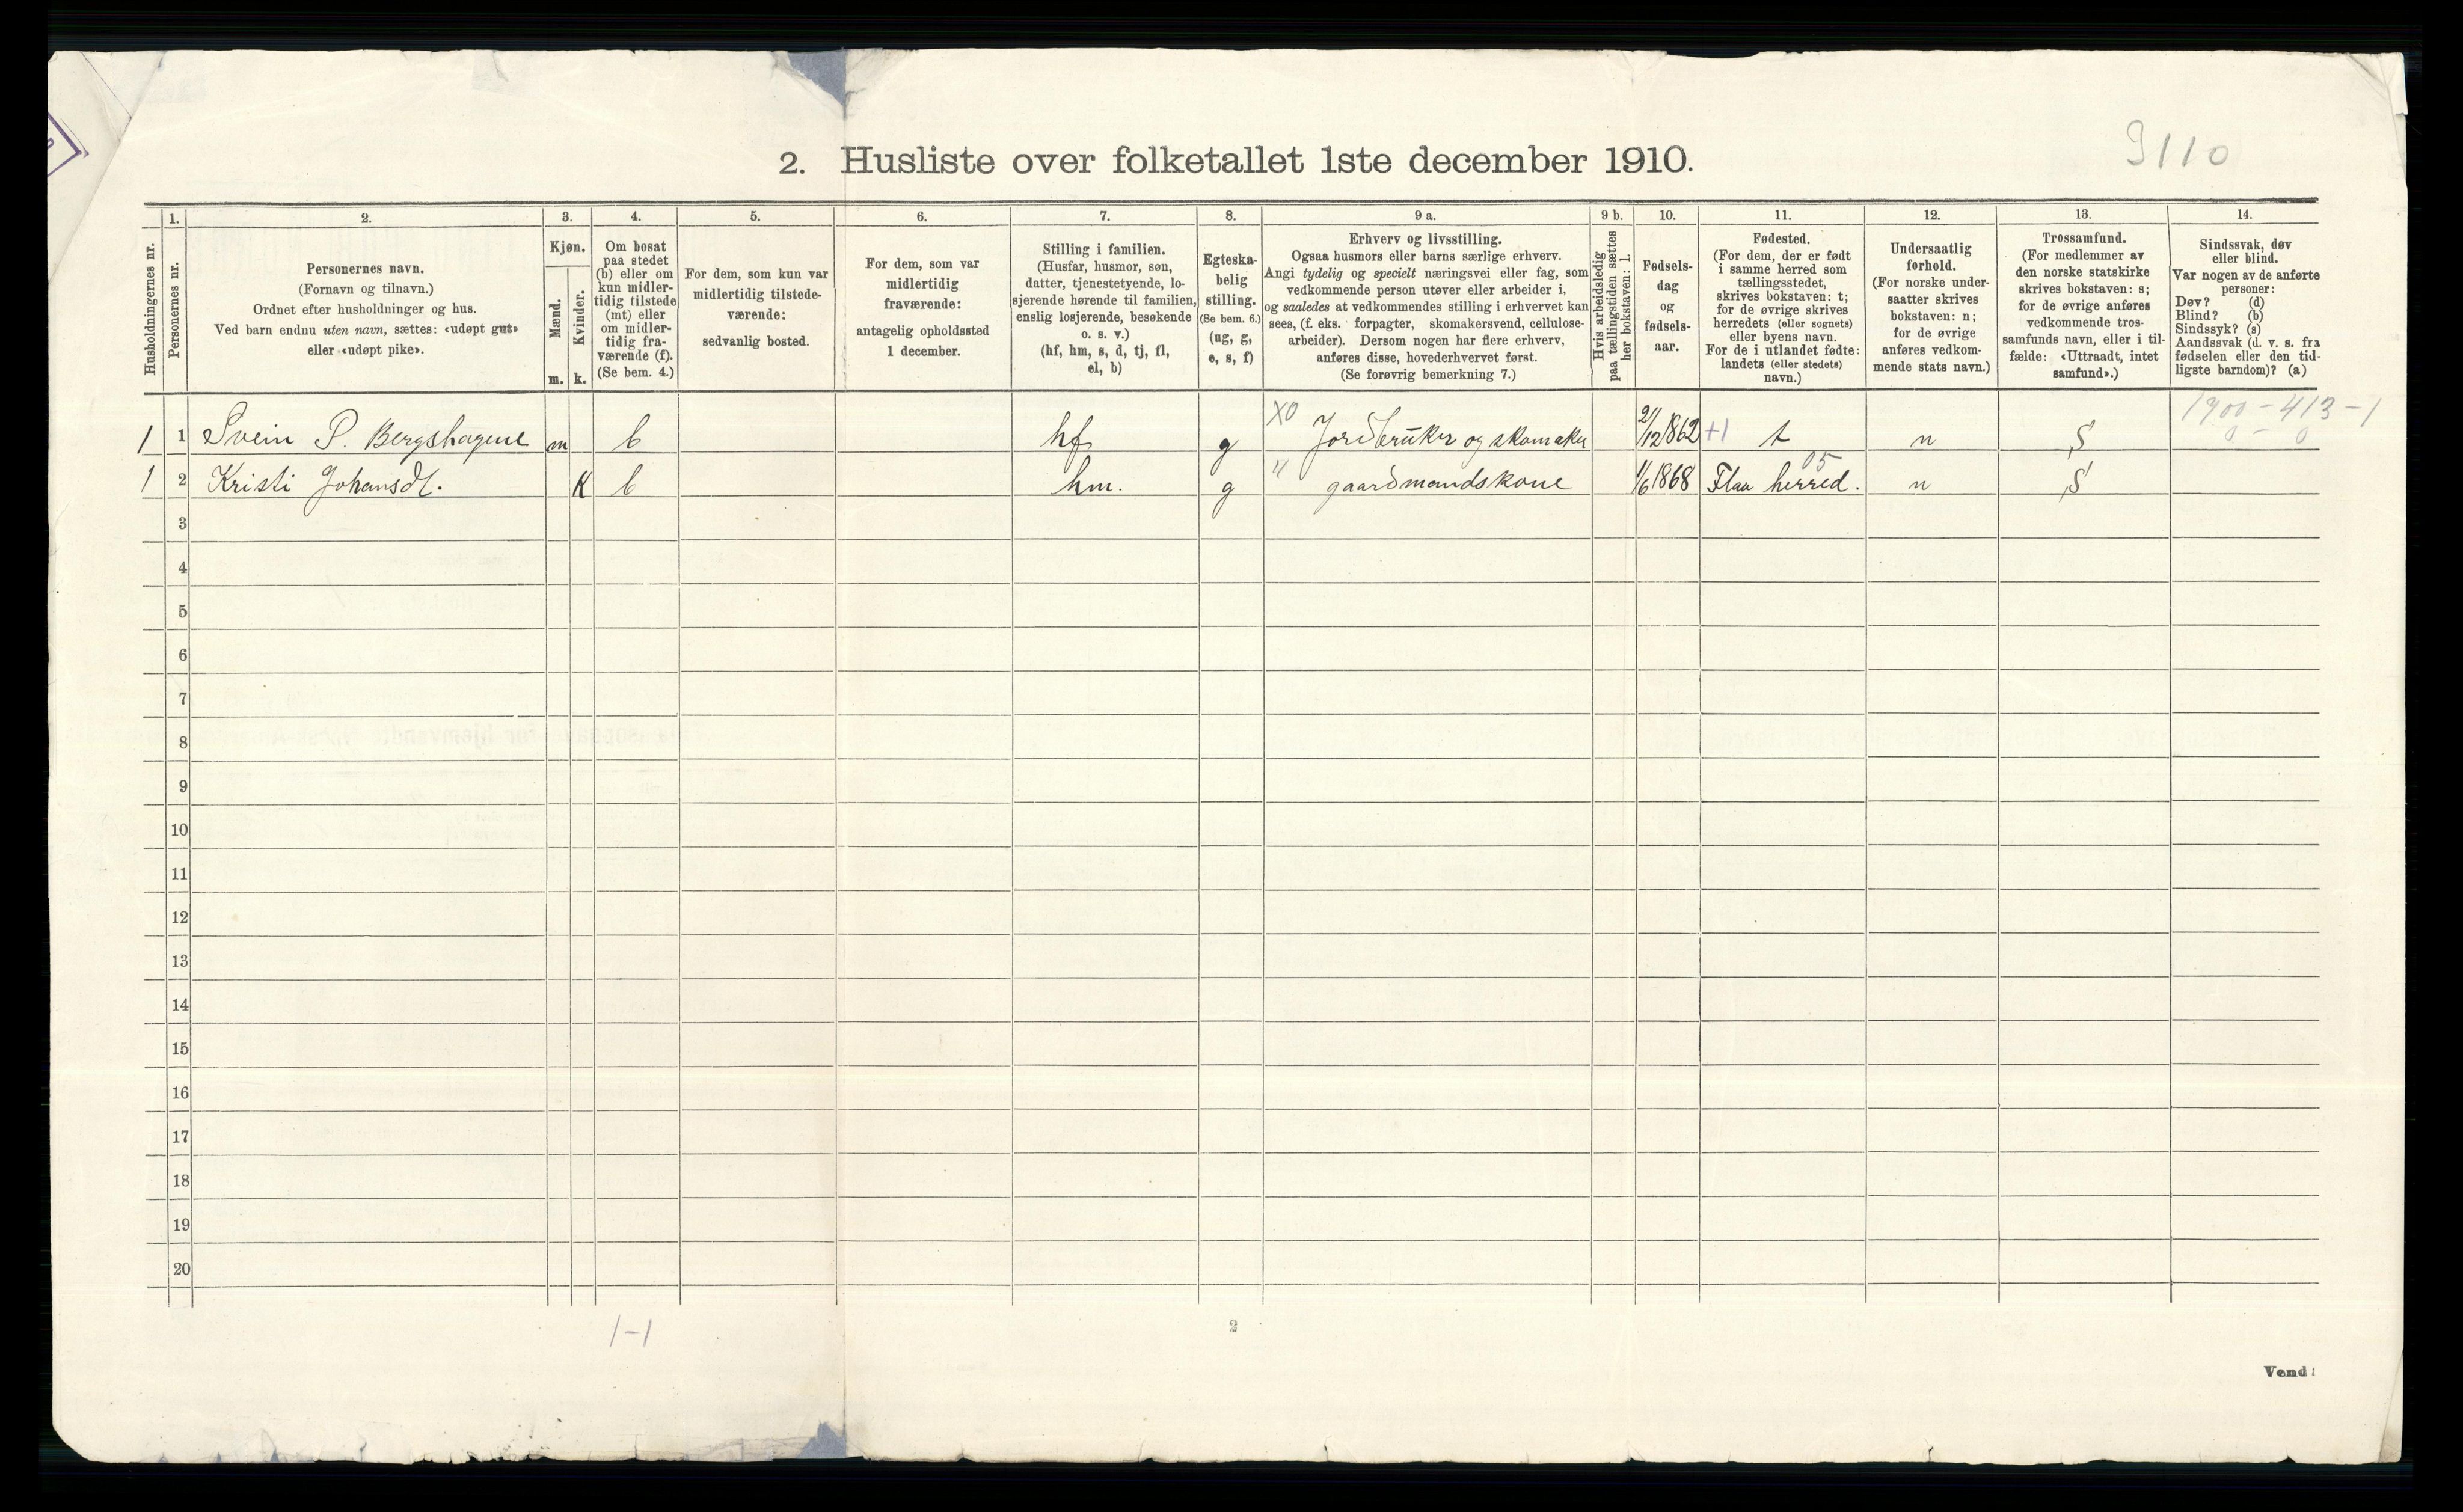 3110
2. Husliste over folketallet 1ste december 1910.
1. 2. 3. 4. 5. 6. 7. 8. 9 a. 9 b. 10. 11. 12. 13. 14.
Husholdningernes nr.
Personernes nr.
Personernes navn.
(Fornavn og tilnavn.)
Ordnet efter husholdninger og hus.
Ved barn endnu uten navn, sættes: «udøpt gut»
eller «udøpt pike».
Kjøn.
Mænd.
Kvinder.
m. k.
Om bosat
paa stedet
(b) eller om
kun midler-
tidig tilstede
(mt) eller
om midler-
tidig fra-
værende (f).
(Se bem. 4.)
For dem, som kun var
midlertidig tilstede-
værende:
sedvanlig bosted.
For dem, som var
midlertidig
fraværende:
antagelig opholdssted
1 december.
Stilling i familien.
(Husfar, husmor, søn,
datter, tjenestetyende, lo-
sjerende hørende til familien,
enslig losjerende, besøkende
o. s. v.)
(hf, hm, s, d, tj, fl,
el, b)
Egteska-
belig
stilling.
(Se bem. 6.)
(ug, g,
e, s, f)
Erhverv og livsstilling.
Ogsaa husmors eller barns særlige erhverv.
Angi tydelig og specielt næringsvei eller fag, som
vedkommende person utøver eller arbeider i,
og saaledes at vedkommendes stilling i erhvervet kan
sees, (f. eks. forpagter, skomakersvend, cellulose-
arbeider). Dersom nogen har flere erhverv,
anføres disse, hovederhvervet først.
(Se forøvrig bemerkning 7.)
Hvis arbeidsledig
paa tællingstiden sættes
her bokstaven: l.
Fødsels-
dag
og
fødsels-
aar.
Fødested.
(For dem, der er født
i samme herred som
tællingsstedet,
skrives bokstaven: t;
for de øvrige skrives
herredets (eller sognets)
eller byens navn.
For de i utlandet fødte:
landets (eller stedets)
navn.)
Undersaatlig
forhold.
(For norske under-
saatter skrives
bokstaven: n;
for de øvrige
anføres vedkom-
mende stats navn.)
Trossamfund.
(For medlemmer av
den norske statskirke
skrives bokstaven: s;
for de øvrige anføres
vedkommende tros-
samfunds navn, eller i til-
fælde: «Uttraadt, intet
samfund».)
Sindssvak, døv
eller blind.
Var nogen av de anførte
personer:
Døv? (d)
Blind? (b)
Sindssyk? (s)
Aandssvak (d. v. s. fra
fødselen eller den tid-
ligste barndom)? (a)
X0
1900 - 413 - 1
1 1 Svein P. Bergshagene m b hf g Jordbruker og skomaker 2/12 1862 +1 t n S 0 - 0
05
1 2 Kristi Johansdt. K b hm. g " gaardmandskone 1/6 1868 Flaa herred. n S
3
4
5
6
7
8
9
10
11
12
13
14
15
16
17
18
19
20
1-1
2
Vend!